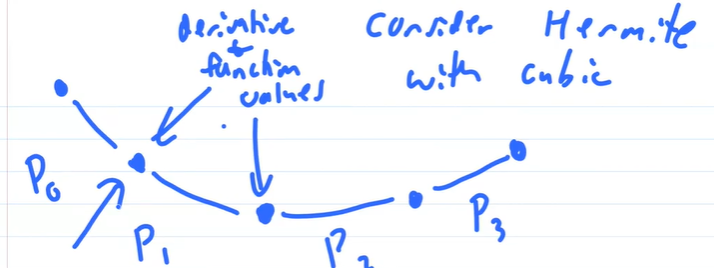 derivative
+
function
values
Consider Hermite
with cubic
P0
P1
P2
P3